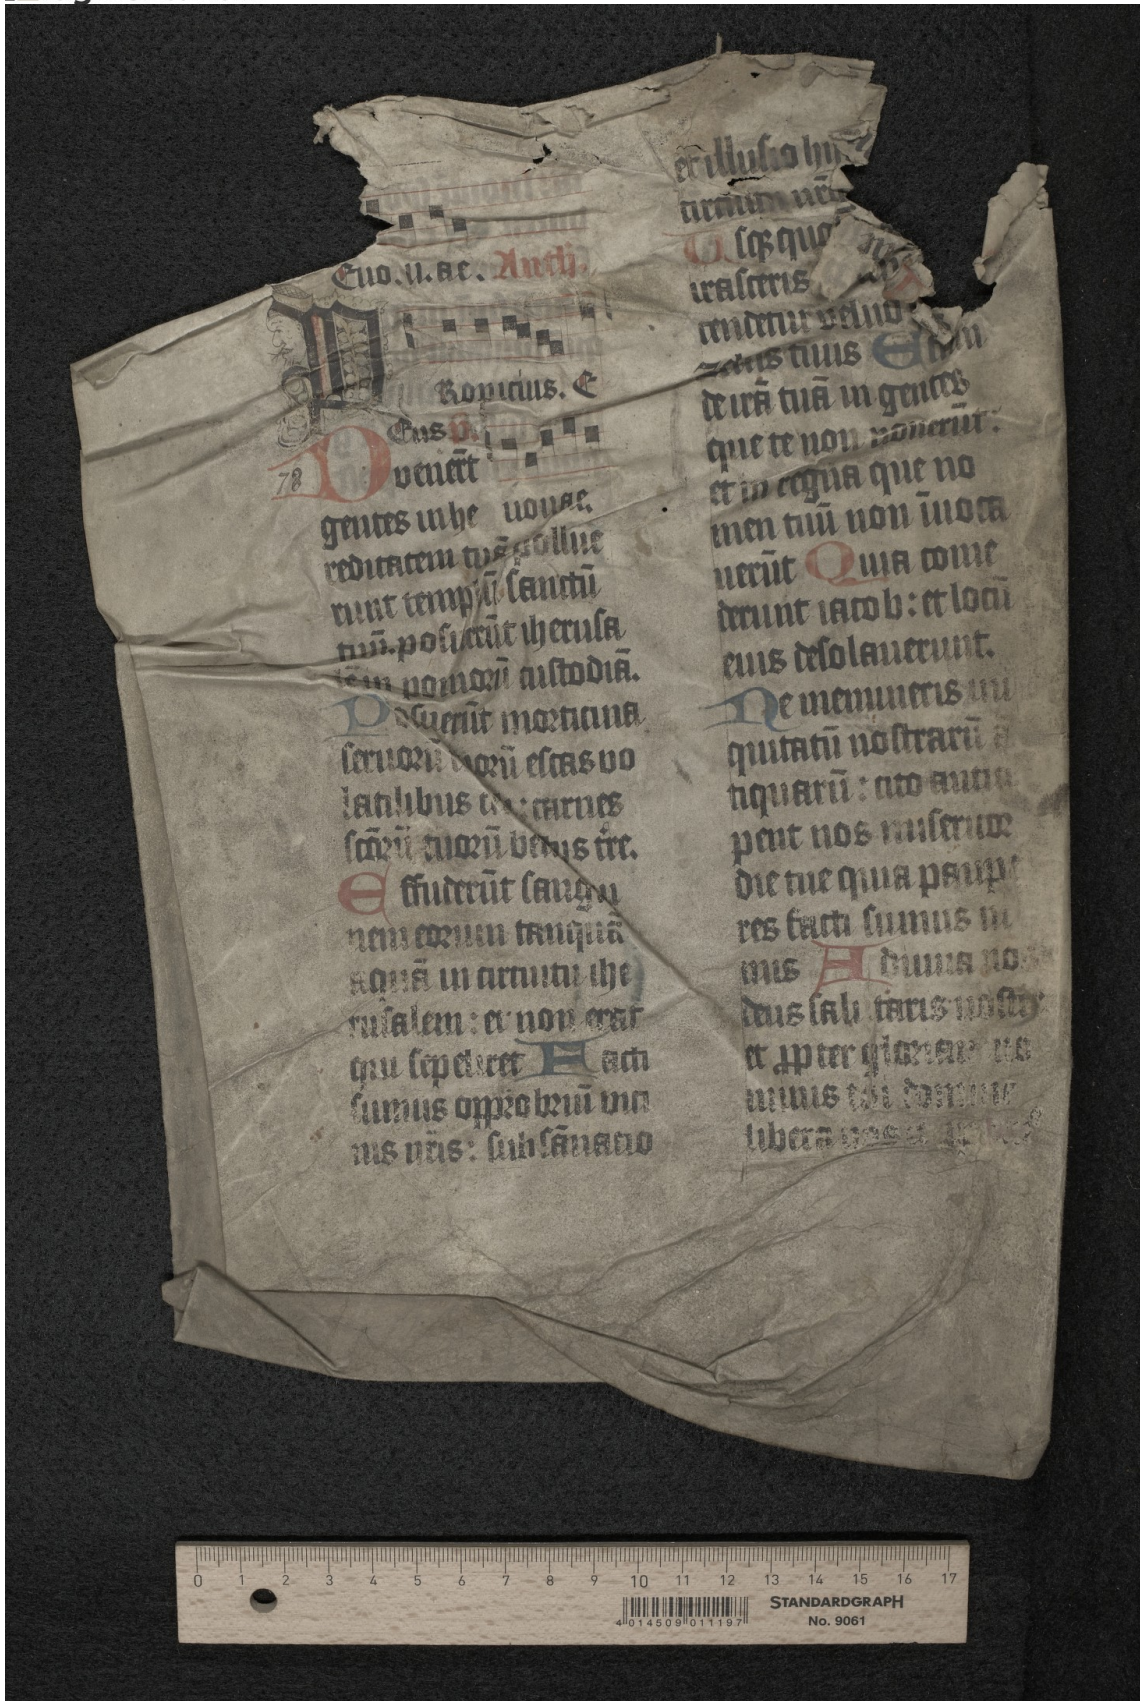 Euo.u.ae. Anth.
Propicius. E
Eus p.
78 venēt
gentes in he uouae.
reditatem tuā pollue
runt templū sanctū
tuū. posuerūt iherusa
lē in pomorū custodiā.
Posuerūt morticina
seruorū tuorū escas vo
latilibus celi: carnes
scōrū tuorū bestiis tre.
Effuderūt sangu
nem eorum tanquā
aquā in circuitu ihe
rusalem: et non erat
qui sepeliret Facti
sumus opprobriū vici
nis nr̄is: subsānatio
et illusio hii
circuitu nrō
Usqȝ quo
irasceris
cendetur velud
zelus tuus Effun
de irā tuā in gentes
que te non nouerūt:
et in regna que no
men tuū non īuoca
uerūt Quia come
derunt iacob: et locū
eius desolauerunt.
Ne memineris ini
quitatū nostrarū a
tiquarū: cito antici
pent nos misericor
die tue quia paupe
res facti sumus ni
mis Adiuua nos
deus salutaris noster
et ꝓpter gloriam no
minis tui domine
libera nos
4 014509 011197
STANDARDGRAPH
No. 9061
0 1 2 3 4 5 6 7 8 9 10 11 12 13 14 15 16 17